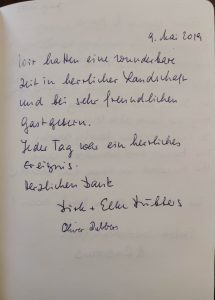 9. Mai 2019
Wir hatten eine wunderbare
Zeit in herrlicher Landschaft
und bei sehr freundlichen
Gastgebern.
Jeder Tag war ein herrliches
Ereignis.
Herzlichen Dank
Dirk + Elke Dubbers
Oliver Dubbers